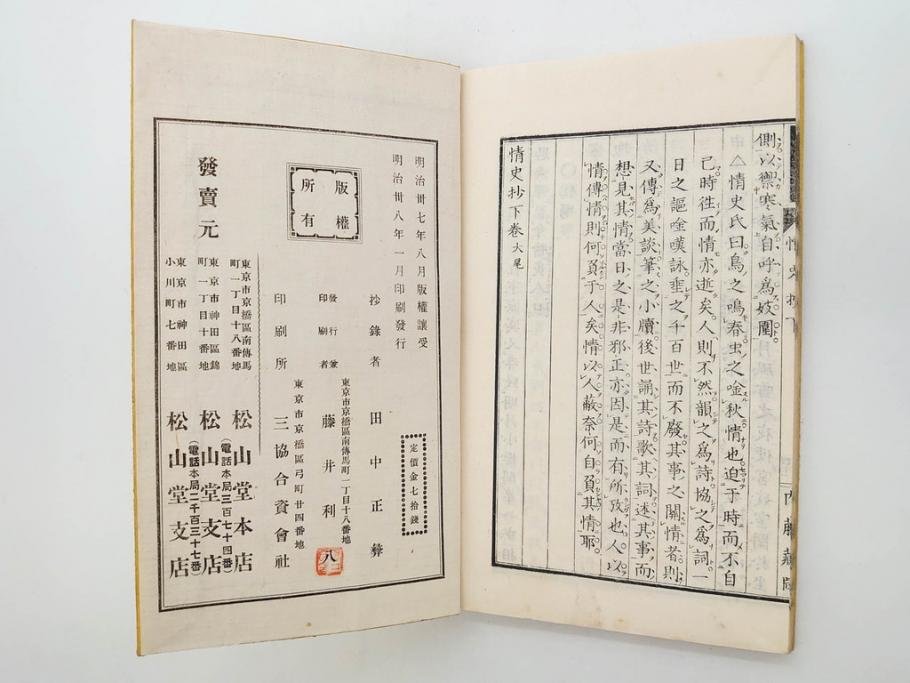 側以禦寒氣自呼爲妓圍
△情史氏曰鳥之鳴春虫之唫秋情也迫于時而不自
己時徃而情亦逝矣人則不然韻之爲詩協之爲詞一
日之謳唫嘆詠垂之千百世而不廢其事之關情者則
又傳爲美談筆之小牘後世誦其詩歌其詞述其事而
想見其情當日之是非邪正亦因是而有所攷也人以
情傳情則何負于人矣情以人蔽奈何自負其情耶
情史抄下卷大尾
情史抄下
明治卅七年八月版權讓受
明治卅八年一月印刷發行
版權
所有
定價金七拾錢
抄錄者 田中正彜
東京市京橋區南傳馬町一丁目十八番地
發行兼
印刷者 藤井利八
東京市京橋區弓町廿四番地
印刷所 三協合資會社
發賣元
東京市京橋區南傳馬
町一丁目十八番地
松山堂本店
(電話本局三百七十四番)
東京市神田區錦
町一丁目十番地
松山堂支店
(電話本局二千百三十七番)
東京市神田區
小川町七番地
松山堂支店